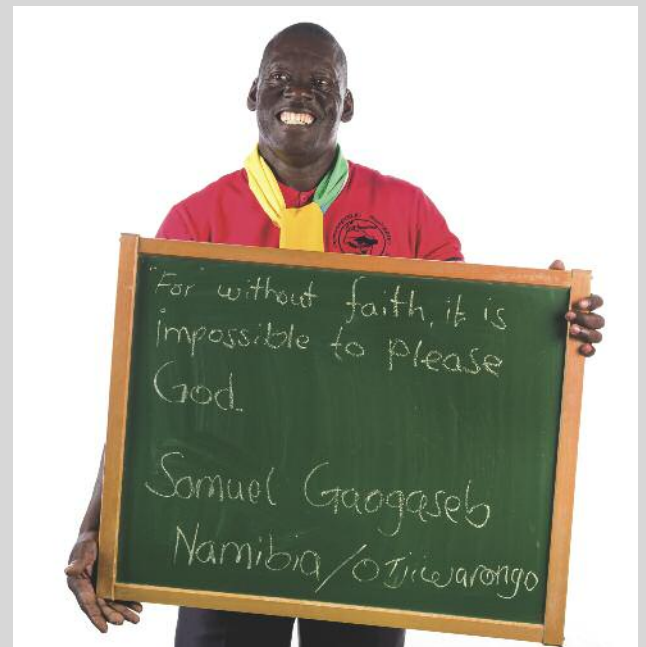 "For without faith, it is
impossible to please
God.
Samuel Gaogaseb
Namibia/Otjiwarongo